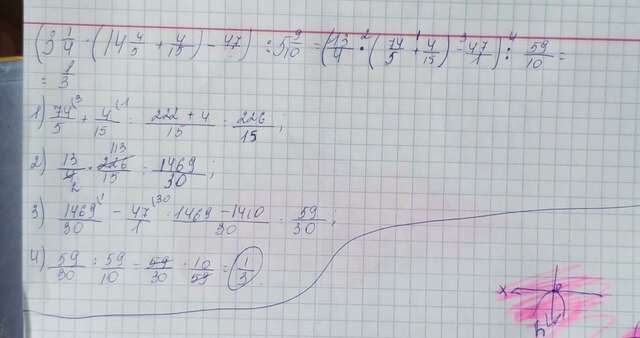 (3 1/4 · (14 4/5 + 4/15) - 47) : 5 9/10 = (13/4 · (74/5 + 4/15) - 47/1) : 59/10 =
= 1/3
1) 74/5 + 4/15 = 222 + 4/15 = 226/15 ;
2) 13/4 · 226/15 = 1469/30 ;
3) 1469/30 - 47/1 = 1469 - 1410/30 = 59/30 ;
4) 59/30 : 59/10 = 59/30 · 10/59 = 1/3
x